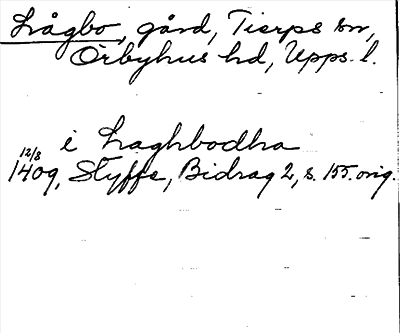 Lågbo, gård, Tierps sn,
Örbyhus hd, Upps. l.
i Laghbodha
12/8 1409, Styffe, Bidrag 2, s. 155. orig.